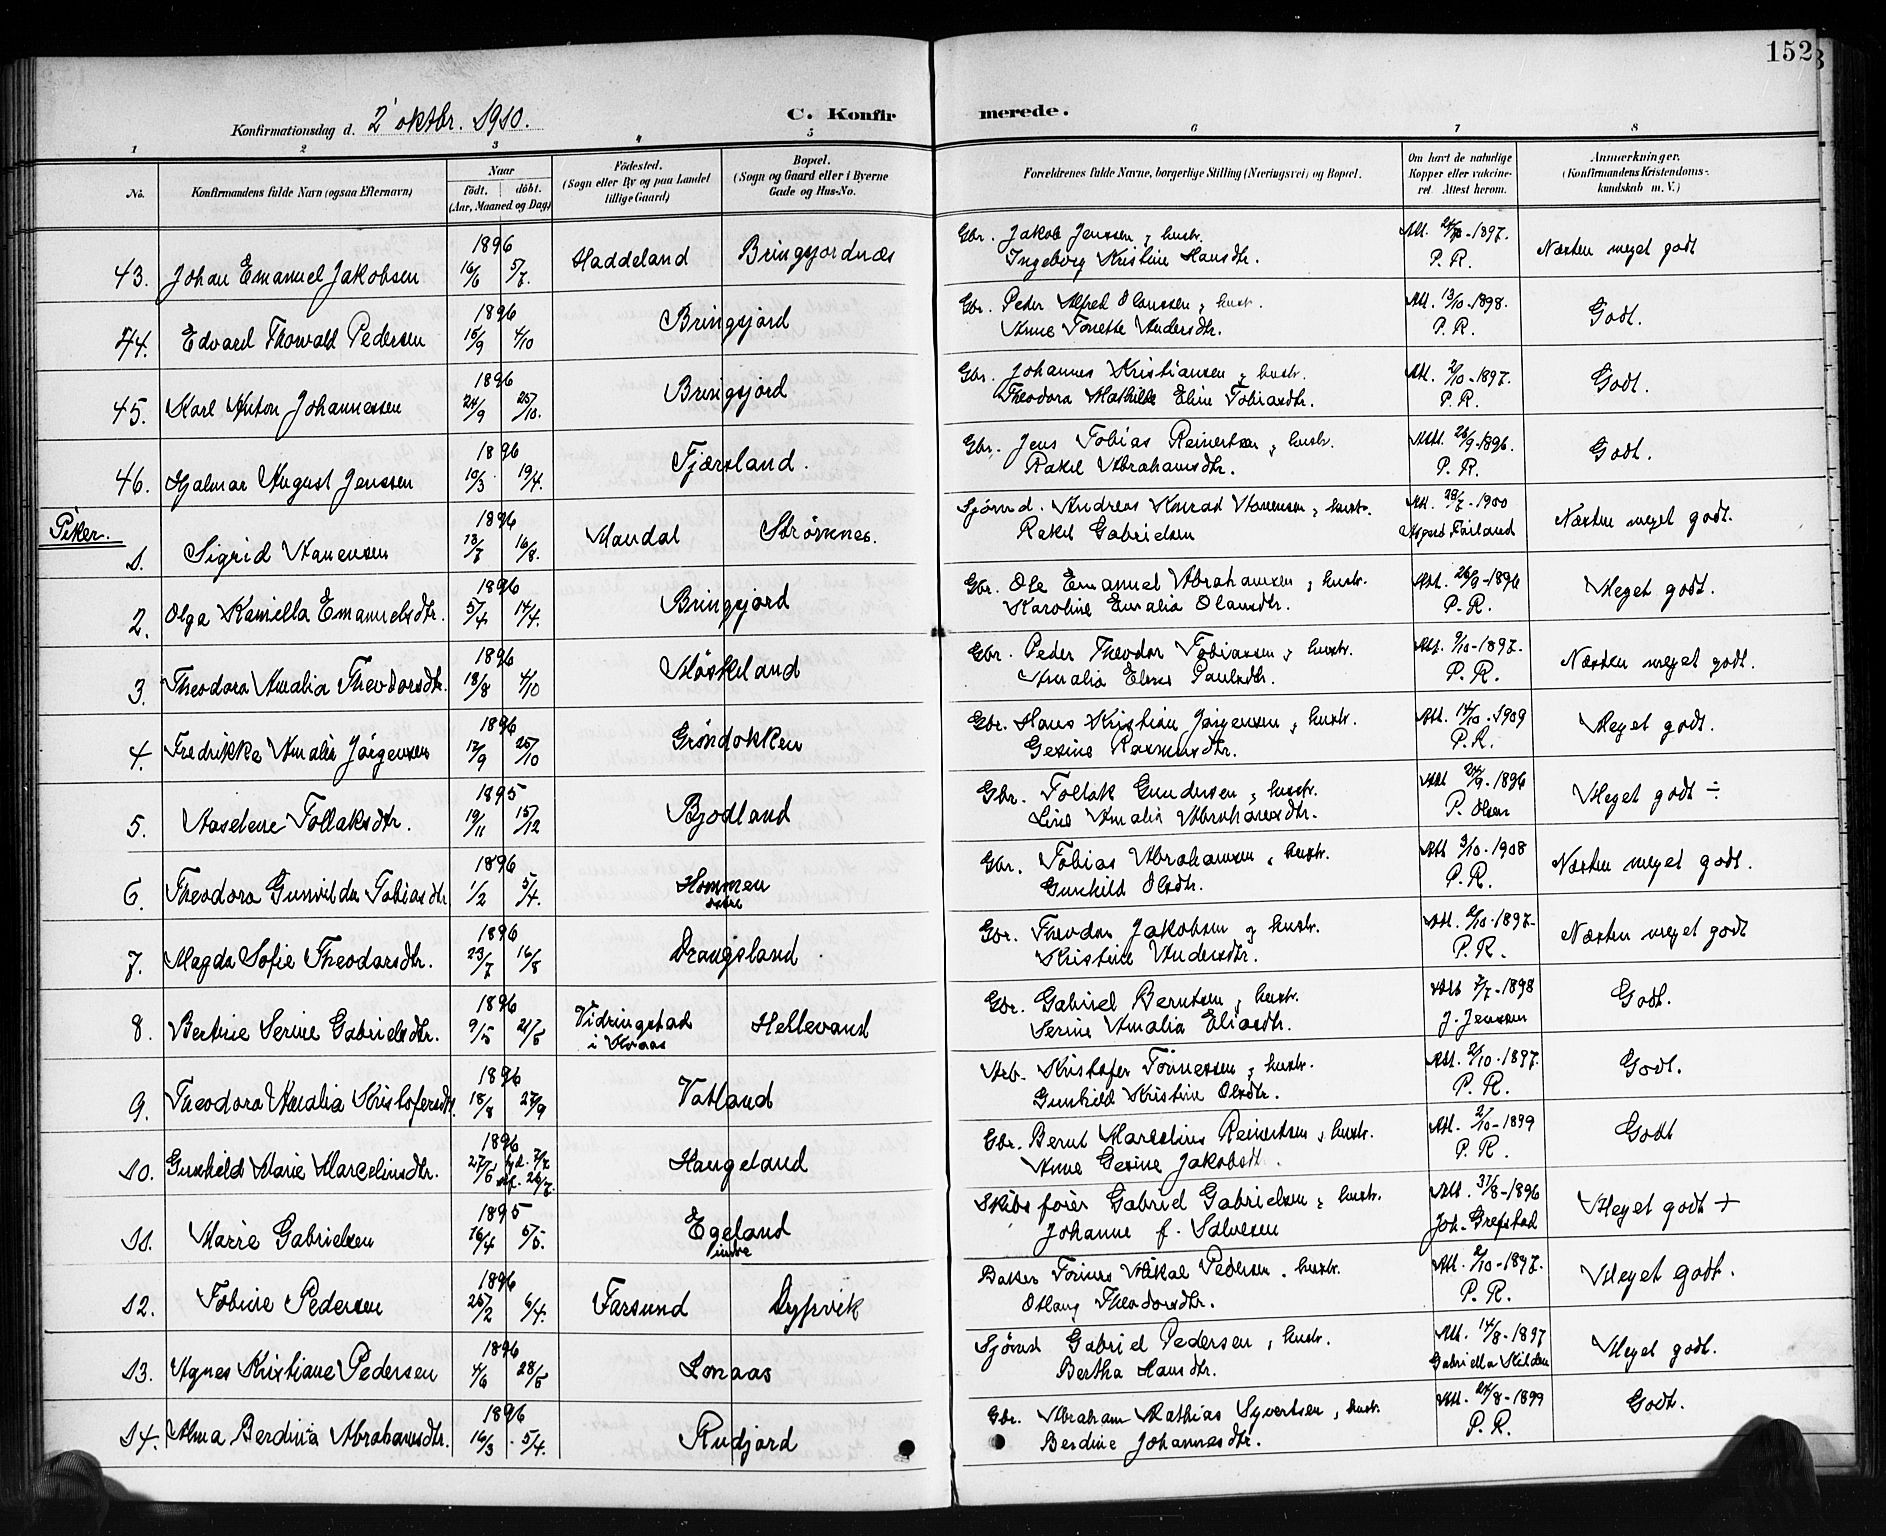 152
Konfirmationsdag d. 2' oktbr. 1910.
C. Konfirmerede.
1 2 3 4 5 6 7 8
No. | Konfirmandens fulde Navn (ogsaa Efternavn) | Naar født. døbt. (Aar, Maaned og Dag) | Fødested. (Sogn eller By og paa Landet tillige Gaard) | Bopæl. (Sogn og Gaard eller i Byerne Gade og Hus-No. | Forældrenes fulde Navne, borgerlige Stilling (Næringsvei) og Bopæl. | Om havt de naturlige Kopper eller vaccineret. Attest herom. | Anmærkninger. (Konfirmandens Kristendomskundskab m. V.)
43. Johan Emanuel Jakobsen | 1896 16/6 5/7. | Haddeland | Bringsjordnæs | Gbr. Jakob Jenssen, hustr. Ingeborg Kristine Hansdtr. | Att. -1897. P. R. | Næsten meget godt
44. Edvard Thorvald Pedersen | 1896 15/9 4/10 | Bringsjord | Gbr. Peder Alfred Olaussen, hustr. Anne Tonette Andersdtr. | Att. 13/10-1898. P. R. | Godt.
45. Karl Anton Johannessen | 1896 24/9 25/10. | Bringsjord | Gbr. Johannes Kristiansen, hustr. Theodora Mathilde Eline Tobiasdtr. | Att. 2/10-1897. P. R. | Godt.
46. Hjalmar August Jenssen | 1896 10/3 19/4. | Tjærsland. | Gbr. Jens Tobias Reinertsen, hustr. Rakel Abrahamsdtr. | Att. 26/9-1896. P. R. | Godt.
Piker.
1. Sigrid Aanensen | 1896 13/7 16/8. | Mandal | Strømnes. | Sjømd. Andreas Konrad Aanensen, hustr. Rakel Gabrielsen | Att. 28/7-1900 Asgerd Førland | Næsten meget godt.
2. Olga Kamilla Emanuelsdtr. | 1896 5/4 14/4. | Bringsjord | Gbr. Ole Emanuel Abrahamsen, hustr. Karoline Emalia Olausdtr. | Att. 26/9-1896 P. R. | Meget godt.
3. Theodora Amalia Theodorsdtr. | 1896 18/8 4/10 | Møskeland | Gbr. Peder Theodor Tobiassen, hustr. Amalia Elene Paulsdtr. | Att. 9/10-1897. P. R. | Næsten meget godt.
4. Fredrikke Amalie Jørgensen | 1896 12/9 25/10 | Grøndokken | Gbr. Hans Kristian Jørgensen, hustr. Gesine Rasmusdtr. | Att. 14/10-1909 P. R. | Meget godt.
5. Aaselene Tollaksdtr. | 1895 19/11 15/12 | Bjodland | Gbr. Tollak Gundersen, hustr. Line Amalia Abrahamsdtr. | Att. 24/9-1896 P. Olsen | Meget godt ÷
6. Theodora Gunvilda Tobiasdtr | 1896 1/2 5/4. | Hommen østre | Gbr. Tobias Abrahamsen, hustr. Gunhild Olsdtr. | Att 3/10-1908 P. R. | Næsten meget godt.
7. Magda Sofie Theodorsdtr. | 1896 23/7 16/8 | Drangsland | Gbr. Theodor Jakobsen og hustr. Kristine Andersdtr. | Att. 2/10-1897. P. R. | Næsten meget godt
8. Bertine Serine Gabrielsdtr. | 1896 9/5 21/5 | Vidringstad i Kvaas | Hellevand | Gbr. Gabriel Berntsen, hustr. Serine Amalia Eliasdtr. | Att 7/7-1898 J. Jenssen | Godt.
9. Theodora Amalia Kristofersdtr | 1896 18/8 27/9 | Vatland | Arb. Kristofer Tønnessen, hustr. Gunhild Kristine Olsdtr. | Att. 2/10-1897. P. R. | Godt.
10. Gunhild Marie Marcelinsdtr. | 1896 27/6 | Haugeland | Gbr. Bernt Marcelius Reinertsen, hustr. Anne Gesine Jakobsdt. | Att. 2/10-1899 P. R. | Godt
11. Marie Gabrielsen | 1895 16/4 5/5. | Egeland indre | Skibsfører Gabriel Gabrielsen, hustr. Johanne f. Salvesen | Att. 31/8-1896 Joh. Grefstad | Meget godt +
12. Tobine Pedersen | 1896 25/2 6/4. | Farsund | Dypvik | Baker Tønnes Mikal Pedersen. hustr. Otlaug Theodorsdtr. | Att. 2/10-1897. P. R. | Meget godt.
13. Agnes Kristiane Pedersen | 1896 4/6 28/6 | Lonaas | Sjømd Gabriel Pedersen, hustr. Bertha Hansdtr. | Att. 14/8-1897 Gabriella Kilden | Meget godt.
14. Alma Berdinia Abrahamsdtr. | 1896 16/3 5/4. | Rudjord | Gbr. Abraham Mathias Syvertsen, hustr. Berdine Johannesdtr. | Att. 24/8-1899 P. R. | Godt.